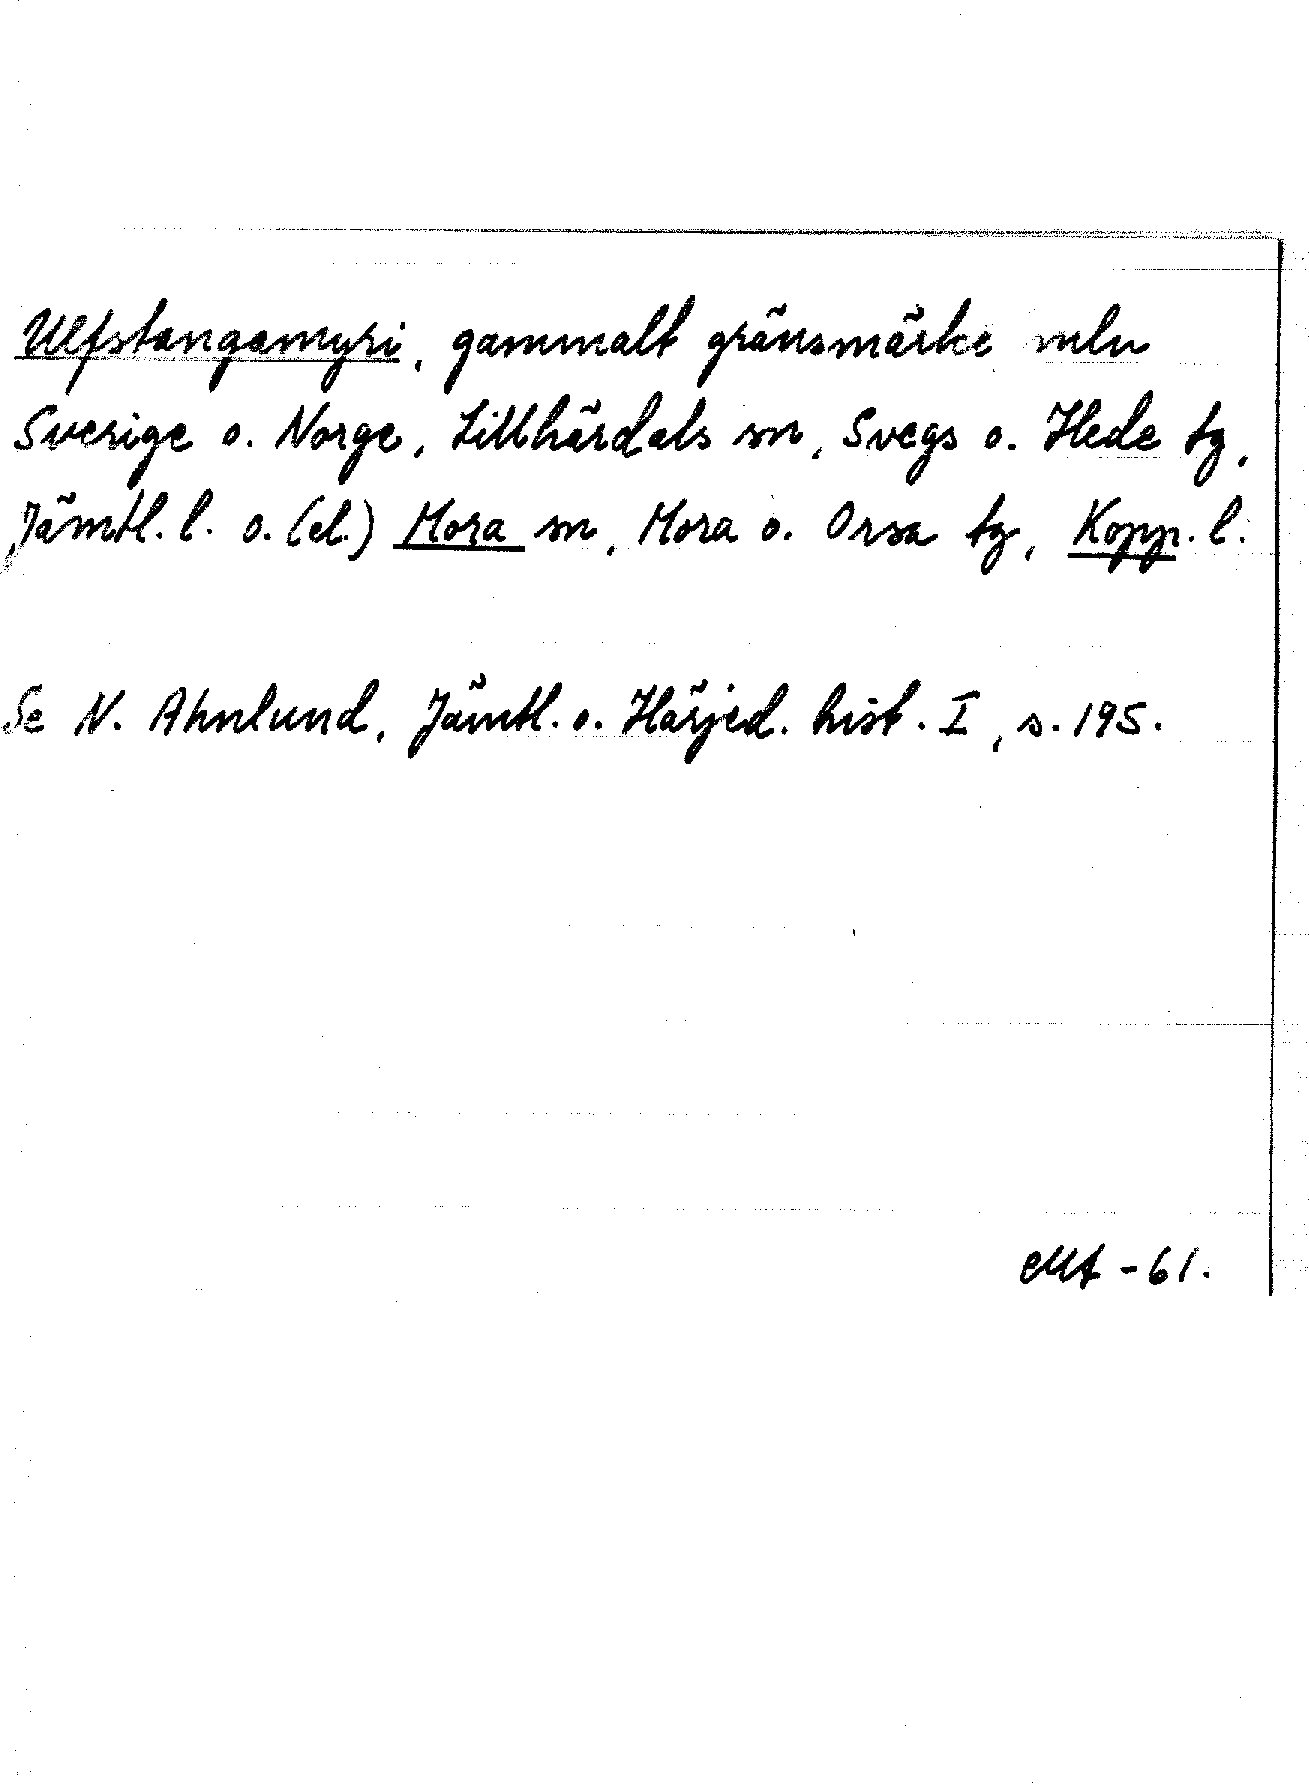 Ulfstangamyri, gammalt gränsmärke mln
Sverige o. Norge, Lillhärdals sn, Svegs o. Hede tg,
Jämtl. l. o. (el.) Mora sn, Mora o. Orsa tg, Kopp. l.
Se N. Ahnlund, Jämtl. o. Härjed. hist. I, s. 195.
-61.